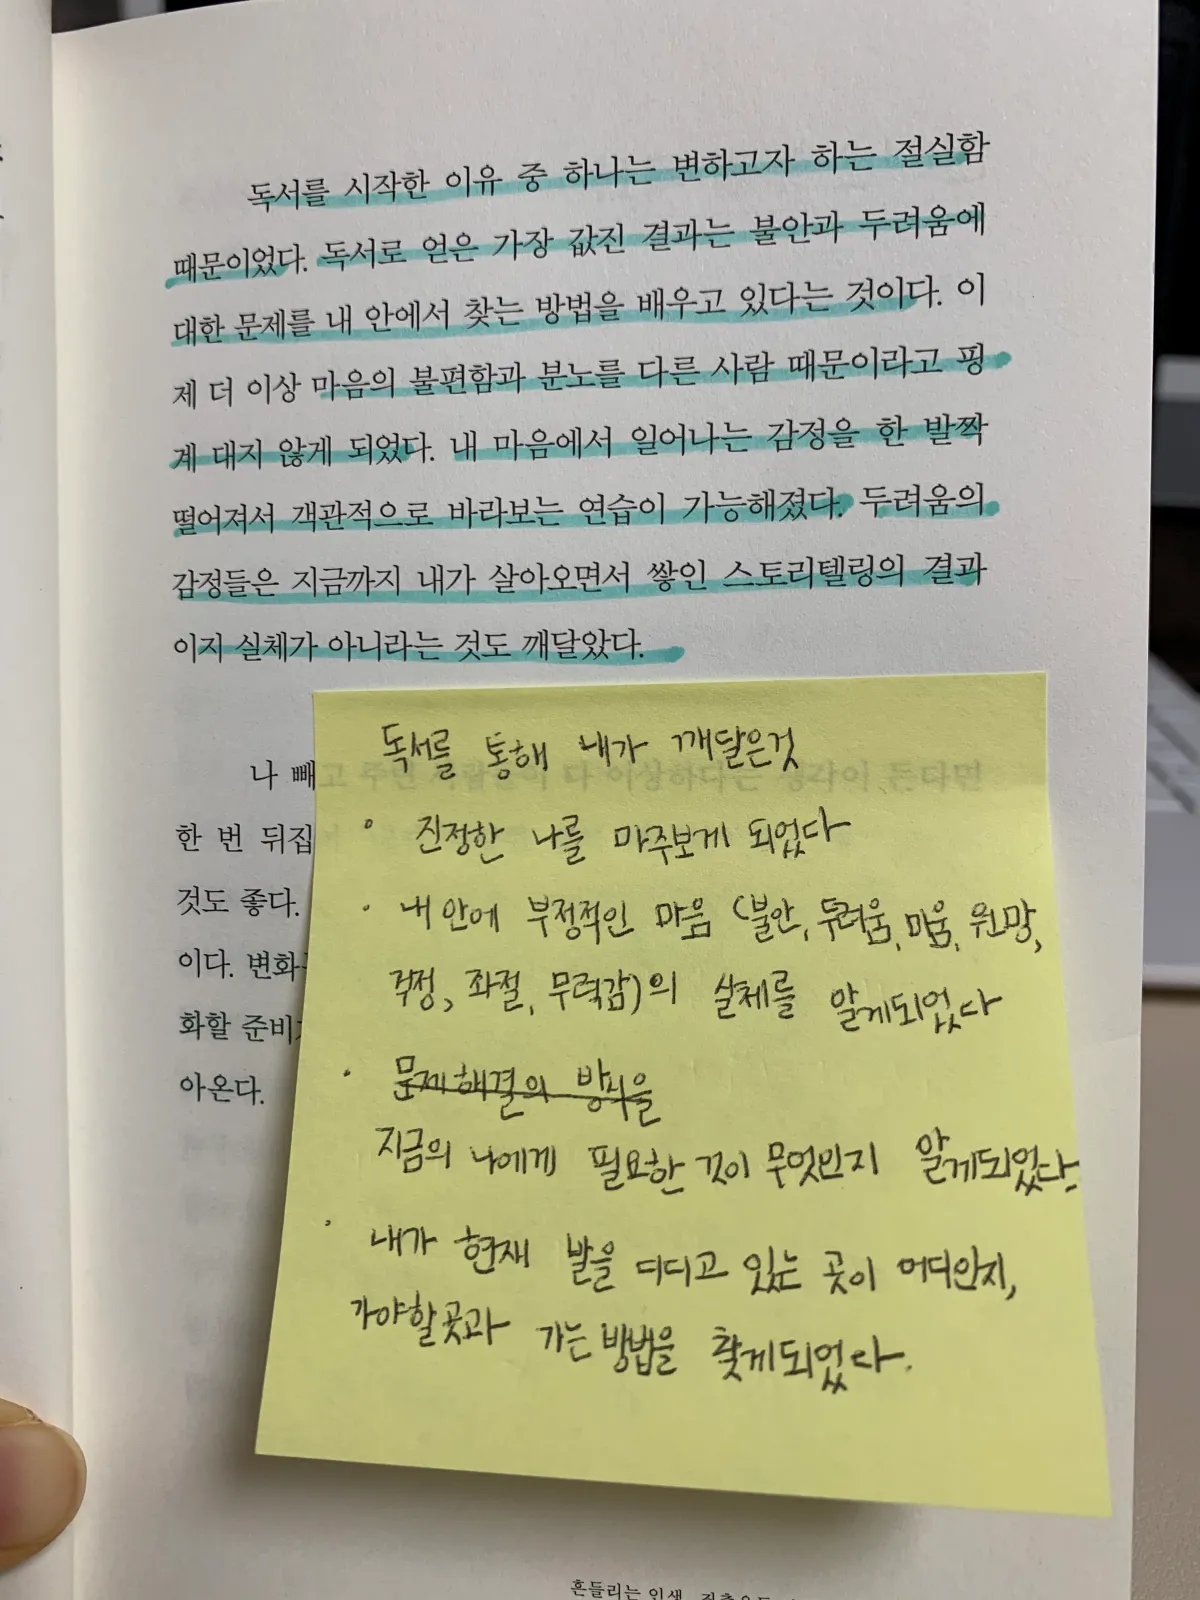 독서를 시작한 이유 중 하나는 변하고자 하는 절실함
때문이었다. 독서로 얻은 가장 값진 결과는 불안과 두려움에
대한 문제를 내 안에서 찾는 방법을 배우고 있다는 것이다. 이
제 더 이상 마음의 불편함과 분노를 다른 사람 때문이라고 핑
계 대지 않게 되었다. 내 마음에서 일어나는 감정을 한 발짝
떨어져서 객관적으로 바라보는 연습이 가능해졌다. 두려움의
감정들은 지금까지 내가 살아오면서 쌓인 스토리텔링의 결과
이지 실체가 아니라는 것도 깨달았다.
나 빼고 주변 사람들이 다 이상하다는 생각이 든다면
한 번 뒤집
것도 좋다.
이다. 변화
화할 준비
아온다.
독서를 통해 내가 깨달은것
• 진정한 나를 마주보게 되었다
• 내 안에 부정적인 마음 (불안, 두려움, 미움, 원망,
걱정, 좌절, 무력감)의 실체를 알게되었다
• 문제해결의 방식을
지금의 나에게 필요한 것이 무엇인지 알게되었다.
• 내가 현재 발을 디디고 있는 곳이 어디인지,
가야할곳과 가는 방법을 찾게되었다.
흔들리는 인생,